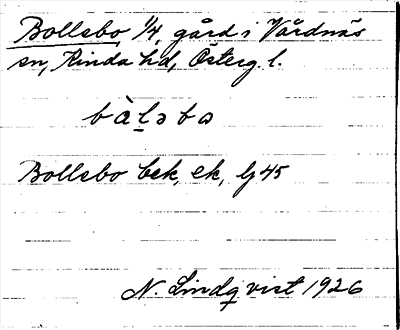 Bollsbo 1/4, gård i Vårdnäs
sn, Kinda hd, Österg. l.
bàl̠ɜbɷ
Bollebo bek, ek, lj 45
N. Lindqvist 1926